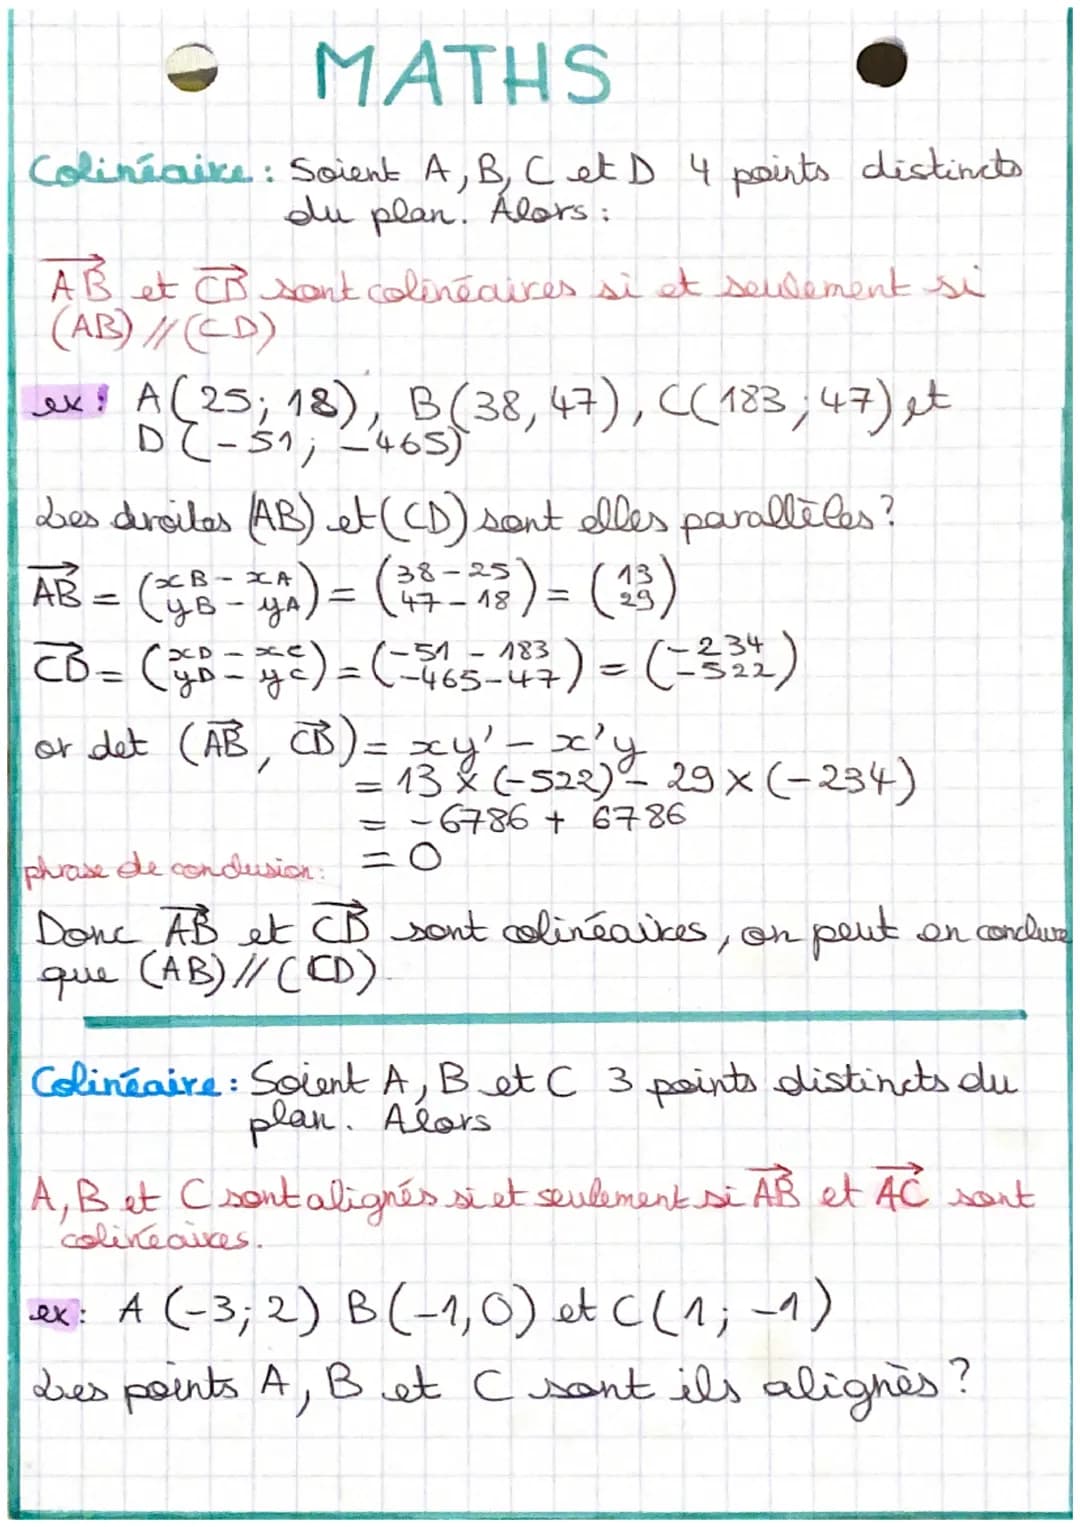 MATHS
Colinéaire : Soient A, B, C et D 4 points distincts
du plan. Alors :
AB et CD sont colinéaires si et seulement si
(AB) // (CD)
ex : A(25; 18), B(38, 47), C(183; 47) et
D(-51; -465)
Les droites (AB) et (CD) sont elles parallèles?
AB = (xB - xA / yB - yA) = (38 - 25 / 47 - 18) = (13 / 29)
CD = (xD - xC / yD - yC) = (-51 - 183 / -465 - 47) = (-234 / -522)
or det (AB, CD) = xy' - x'y
= 13 × (-522) - 29 × (-234)
= -6786 + 6786
= 0
phrase de conclusion:
Donc AB et CD sont colinéaires, on peut en conclure
que (AB) // (CD).
Colinéaire : Soient A, B et C 3 points distincts du
plan. Alors
A, B et C sont alignés si et seulement si AB et AC sont
colinéaires.
ex : A (-3; 2) B(-1, 0) et C(1; -1)
Les points A, B et C sont ils alignès ?